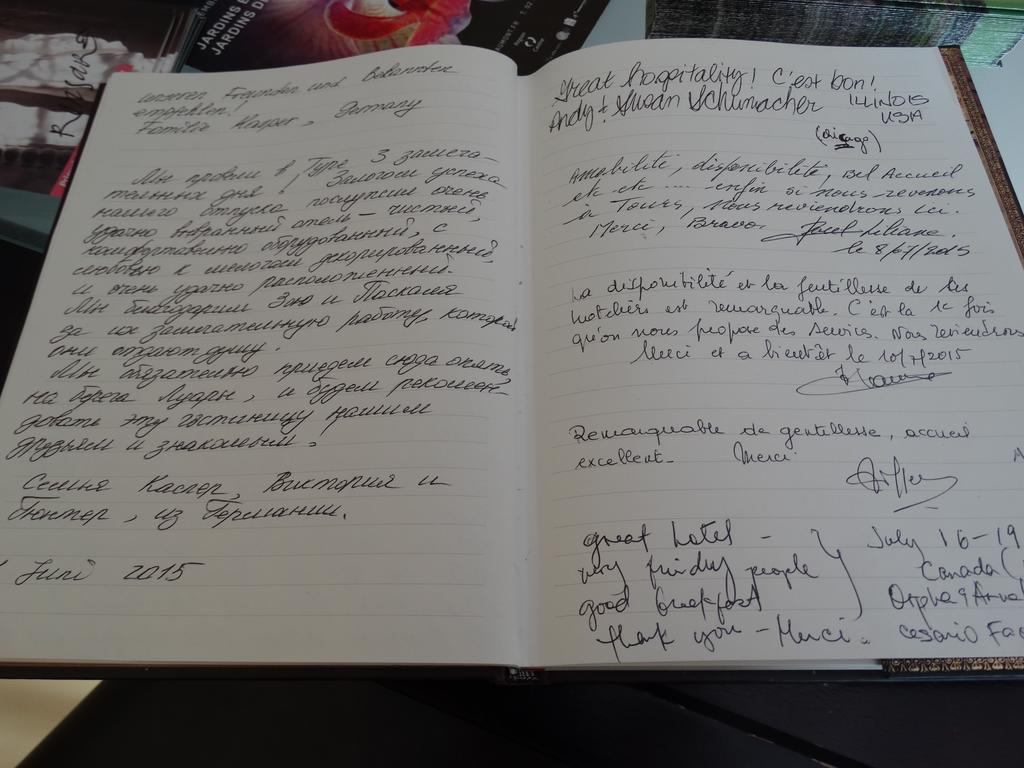 JARDINS
JARDINS DE
unseren Freunden und Bekannten
empfehlen!
Familie Kasper, Germany
Мы провели в Туре 3 замеча-
тельных дня! Залогом успеха
нашего отпуска послужил очень
удачно выбранный отель – чистый,
комфортабельно оборудованный, с
любовью к мелочам декорированный,
и очень удачно расположенный.
Мы благодарим Зою и Паскаля
за их замечательную работу, которой
они отдают душу.
Мы обязательно приедем сюда опять,
на берега Луары, и будем рекомен-
довать эту гостиницу нашим
друзьям и знакомым.
Семья Каспер, Виктория и
Гюнтер, из Германии.
Juni 2015
Great hospitality! C'est bon!
Andy + Susan Schumacher ILLINOIS
USA
(Chicago)
Amabilité, disponibilité, Bel Accueil
etc etc .... enfin si nous revenons
à Tours, nous reviendrons ici.
Merci, Bravo.
le 8/07/2015
La disponibilité et la gentillesse de
hôteliers est remarquable. C'est la 1e fois
qu'on nous propose des services. Nous reviendrons
Merci et a bientôt le 10/7/2015
Remarquable de gentillesse, accueil
excellent. Merci
great hotel - July 16-19
very friendly people Canada (
good breakfast Orpha & 
thank you - Merci. cesario